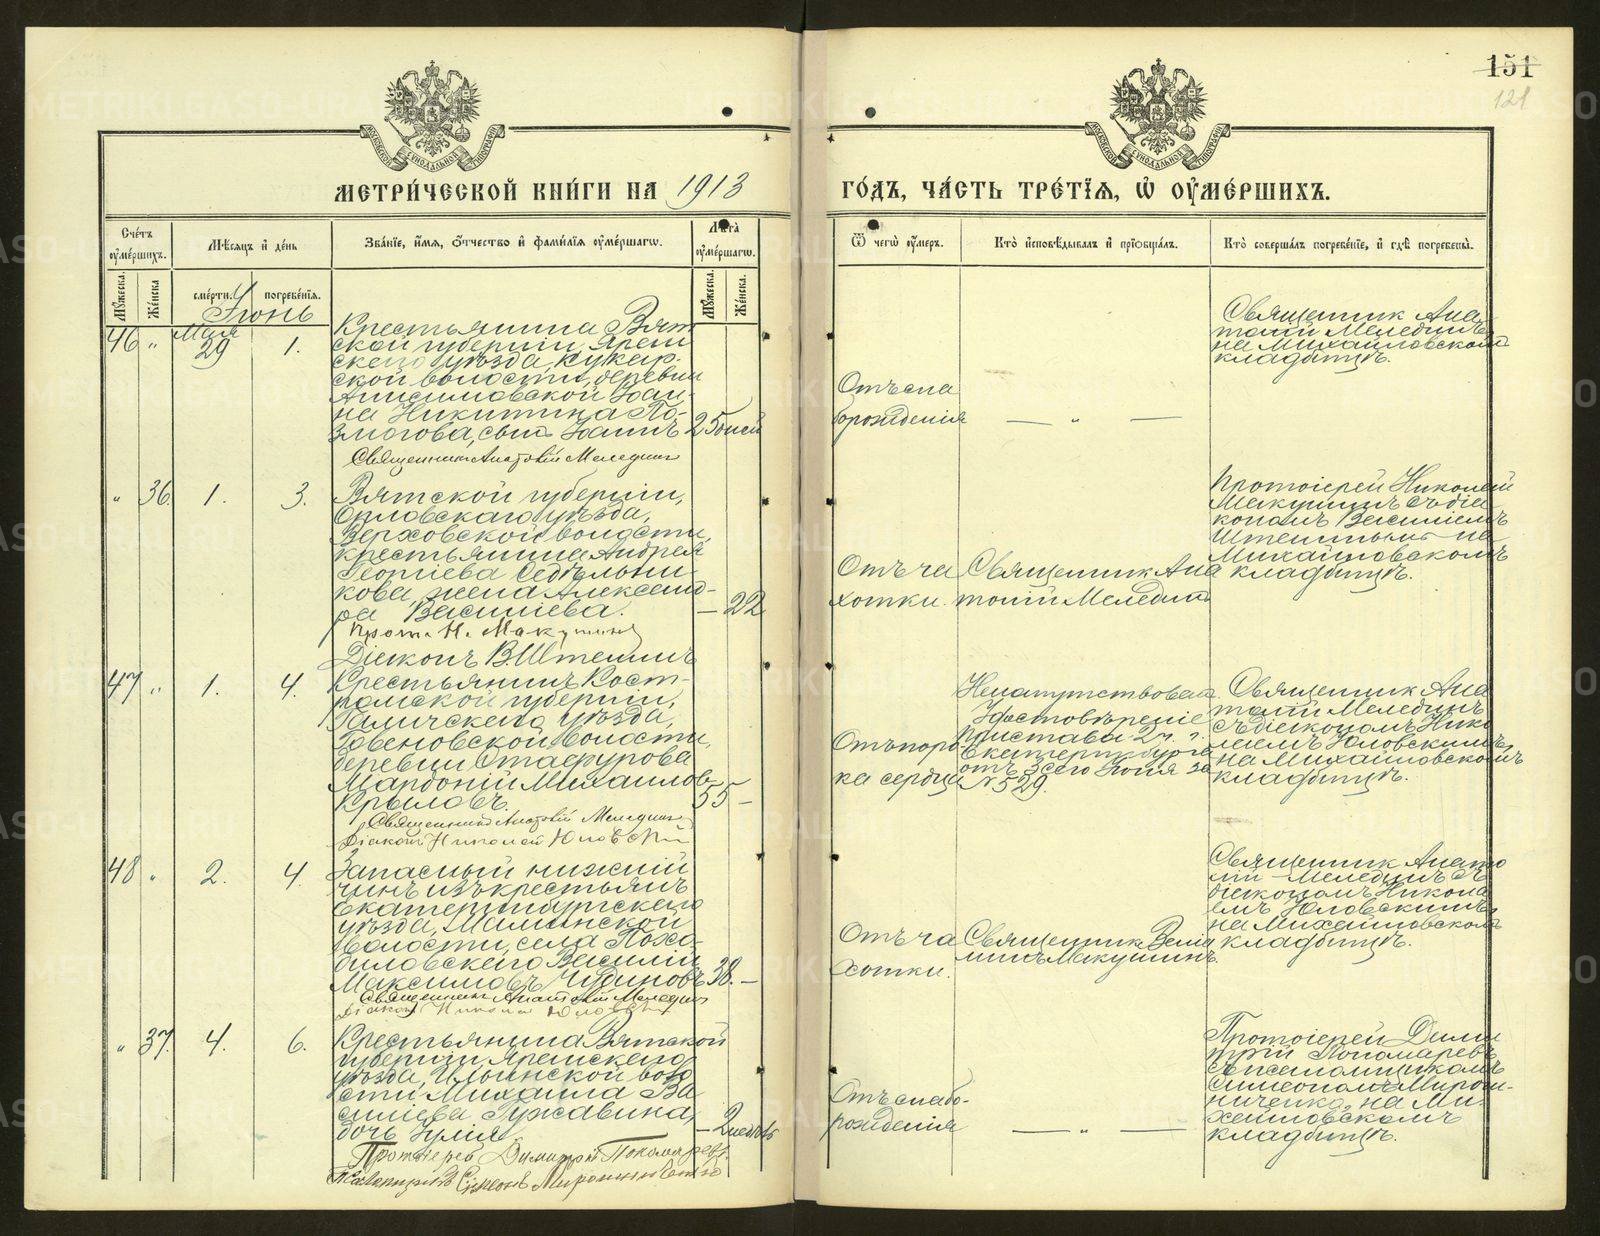 151
121
МЕТРИ́ЧЕСКОЙ КНИ́ГИ НА 1913 ГО́ДЪ, ЧА́СТЬ ТРЕ́ТІѦ, Ѡ҆ ОУ҆МЕ́РШИХЪ.
Сче́тъ оу҆ме́ршихъ.
Мѣ́сѧцъ и҆ де́нь
Зва́нїе, и҆́мѧ, ѻ҆́тчество и҆ фами́лїѧ оу҆ме́ршагѡ.
Лѣ́та оу҆ме́ршагѡ.
Ѿ чегѡ̀ оу҆́меръ.
Кто̀ и҆сповѣ́дывалъ и҆ прїѡбща́лъ.
Кто̀ соверша́лъ погребе́нїе, и҆ гдѣ̀ погребены̀.
Мꙋ́жеска.
Же́нска
сме́рти.
погребе́нїѧ.
Мꙋ́жеска.
Же́нска.
Іюнь
46 " Мая 29 1.
Крестьянина Вят
ской губерніи, Яран
скаго уѣзда, Кукар-
ской волости, деревни
Анисимовской Іоан-
на Никитина По-
змогова, сынъ Іоаннъ
25 дней
Священникъ Анатолій Мелединъ
Отъ сла
борожденія
— " —
Священникъ Ана
толій Мелединъ
на Михайловскомъ
кладбищѣ.
" 36. 1. 3.
Вятской губерніи,
Орловскаго уѣзда,
Верховской волости,
крестьянина Андрея
Георгіева Седѣльни
кова жена Александ-
ра Васильева.
— 22
Прот. Н. Макушинъ
Діаконъ В. Штеминъ
Отъ ча
хотки.
Священникъ Ана
толій Мелединъ
Протоіерей Николай
Макушинъ съ діа
кономъ Василіемъ
на
Михайловскомъ
кладбищѣ.
47 " 1. 4.
Крестьянинъ Кост-
ромской губерніи,
Галичскаго уѣзда,
волости,
деревни
Мардоній Михаиловъ
Крыловъ.
55 —
Священникъ Анатолій Мелединъ
Діаконъ Николай Юловскій
Отъ поро-
ка сердца
Ненапутствованъ
Удостовѣреніе
Пристава 2 ч. г.
Екатеринбурга
отъ 3 сего Іюня за
№ 529.
Священникъ Ана
толій Мелединъ
съ діакономъ Нико
лаемъ Юловскимъ,
на Михайловскомъ
кладбищѣ.
48 " 2. 4.
Запасный нижній
чинъ изъ крестьянъ
Екатеринбургскаго
уѣзда, Маминской
волости, села
Василій
Максимовъ Чудиновъ
38. —
Священникъ Анатолій Мелединъ
Діаконъ Николай Юловскій
Отъ ча
хотки.
Священникъ Вені
минъ Макушинъ.
Священникъ Анато
лій Мелединъ съ
діакономъ Никола
емъ Юловскимъ,
на Михайловскомъ
кладбищѣ.
" 37. 4. 6.
Крестьянина Вятской
губерніи Яранскаго
уѣзда, Ильинской воло
сти Михаила Ва
силіева Гужавина,
дочь Іулія
— 2 недѣль
Протоіерей Димитрій Пономаревъ.
Псаломщикъ Симеонъ Мирошниченко
Отъ слабо-
рожденія
— " —
Протоіерей Дими
трій Пономаревъ
съ псаломщикомъ
Симеономъ Мирош-
ниченко, на Ми-
хайловскомъ
кладбищѣ.